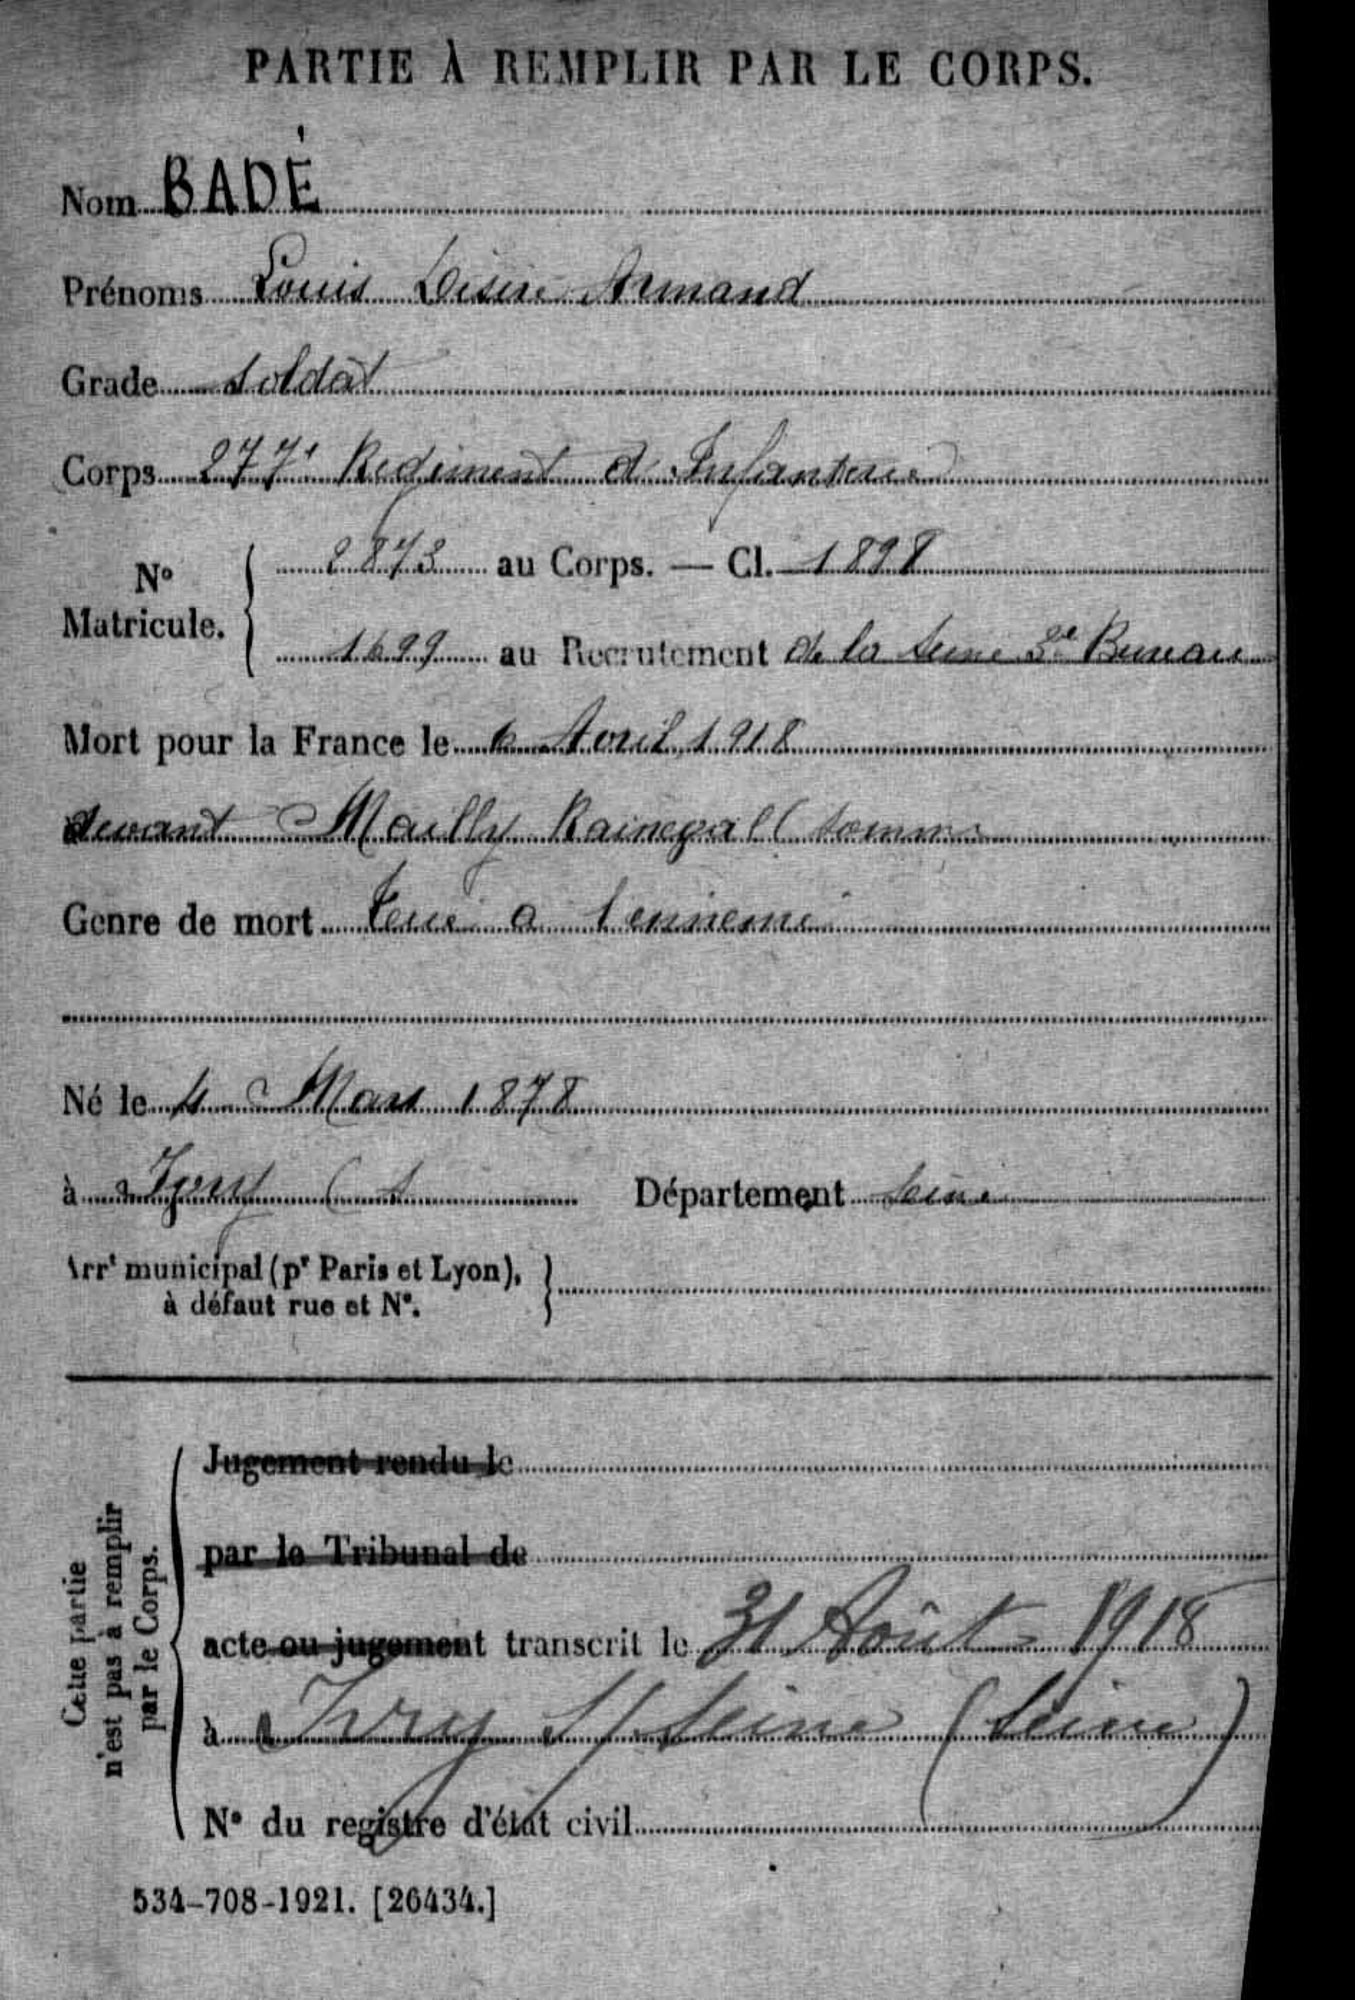 PARTIE À REMPLIR PAR LE CORPS.
Nom BADÉ
Prénoms Louis Désiré Armand
Grade Soldat
Corps 277e Régiment d'Infanterie
N° Matricule. 2873 au Corps. — Cl. 1898
1699 au Recrutement de la Seine 3e Bureau
Mort pour la France le 6 Avril 1918
devant Mailly Raineval (Somme
Genre de mort Tué a l'ennemi
Né le 4 Mars 1878
à Ivry (S Département Seine
Arrt municipal (pr Paris et Lyon),
à défaut rue et N°.
Cette partie
n'est pas à remplir
par le Corps.
Jugement rendu le
par le Tribunal de
acte ou jugement transcrit le 31 Août 1918
à Ivry s/ Seine (Seine)
N° du registre d'état civil
534-708-1921. [26434.]